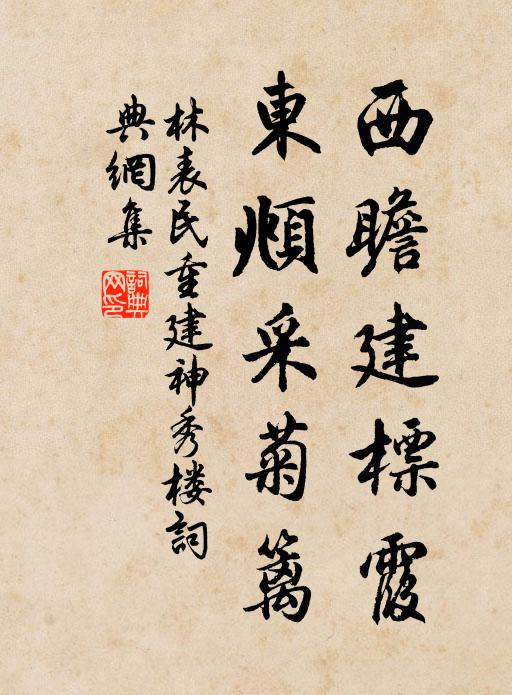 西瞻建標霞
東頫采菊篱
林表民重建神秀楼詞
典網集
詞典网印